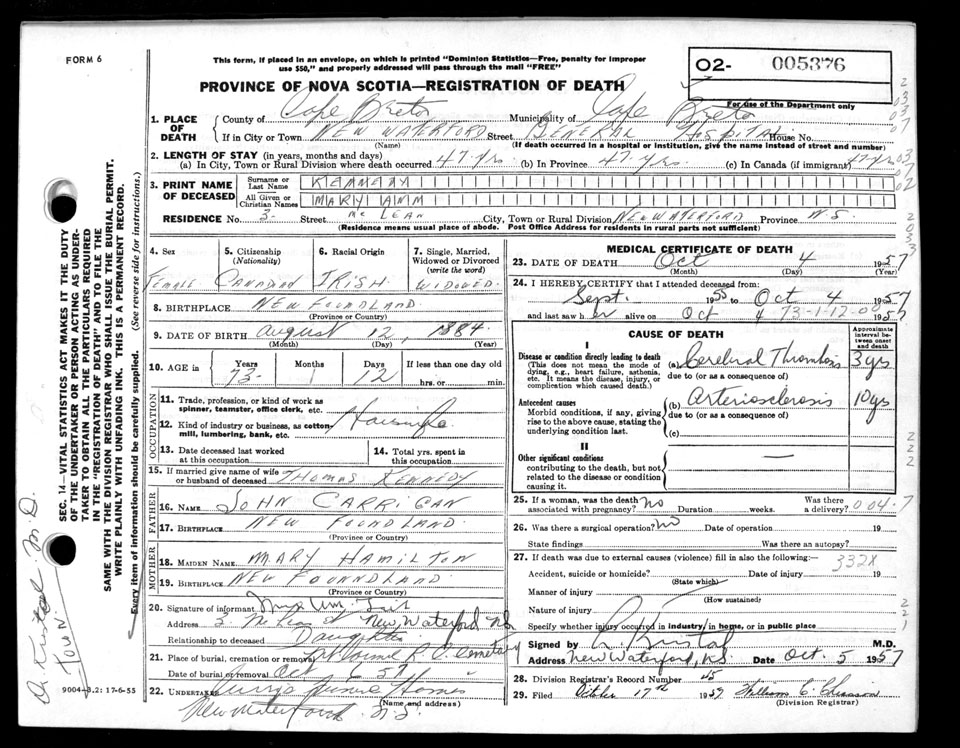 FORM 6
This form, if placed in an envelope, on which is printed "Dominion Statistics—Free, penalty for improper
use $50," and properly addressed will pass through the mail "FREE"
PROVINCE OF NOVA SCOTIA—REGISTRATION OF DEATH
02- 005376
For use of the Department only
1. PLACE OF DEATH
County of Cape Breton Municipality of Cape Breton
If in City or Town NEW WATERFORD Street GENERAL HOSPITAL House No.
(Name) (If death occurred in a hospital or institution, give the name instead of street and number)
2. LENGTH OF STAY (in years, months and days)
(a) In City, Town or Rural Division where death occurred 47 yrs (b) In Province 47 yrs. (c) In Canada (if immigrant) 47 yrs
3. PRINT NAME OF DECEASED
Surname or Last Name KENNEDY
All Given or Christian Names MARY ANN
RESIDENCE No. 3 Street McLEAN City, Town or Rural Division NEW WATERFORD Province N S
(Residence means usual place of abode. Post Office Address for residents in rural parts not sufficient)
4. Sex FEMALE
5. Citizenship (Nationality) CANADIAN
6. Racial Origin IRISH
7. Single, Married, Widowed or Divorced (write the word) WIDOWED
8. BIRTHPLACE NEW FOUNDLAND
(Province or Country)
9. DATE OF BIRTH August 12, 1884
(Month) (Day) (Year)
10. AGE Years 73 Months 1 Days 12 If less than one day old
hrs. or min.
OCCUPATION
11. Trade, profession, or kind of work as
spinner, teamster, office clerk, etc.
12. Kind of industry or business, as cotton-
mill, lumbering, bank, etc. Housewife
13. Date deceased last worked
at this occupation
14. Total yrs. spent in
this occupation
15. If married give name of wife
or husband of deceased THOMAS KENNEDY
FATHER
16. NAME JOHN CARRIGAN
17. BIRTHPLACE NEW FOUNDLAND
(Province or Country)
MOTHER
18. MAIDEN NAME MARY HAMILTON
19. BIRTHPLACE NEW FOUNDLAND
(Province or Country)
20. Signature of informant
Address 3 McLean St New Waterford NS
Relationship to deceased Daughter
21. Place of burial, cremation or removal R. C. Cemetary
Date of burial or removal Oct 6 57
22. UNDERTAKER Homes
(Name and address)
New Waterford N.S.
MEDICAL CERTIFICATE OF DEATH
23. DATE OF DEATH Oct 4 1957
(Month) (Day) (Year)
24. I HEREBY CERTIFY that I attended deceased from:
Sept. 1955 to Oct 4 1957
and last saw her alive on Oct 4 1957
73-1-12-00
CAUSE OF DEATH
Approximate interval between onset and death
I
Disease or condition directly leading to death
(This does not mean the mode of
dying, e.g., heart failure, asthenia,
etc. It means the disease, injury, or
complication which caused death.)
(a) Cerebral Thrombosis 3 yrs
due to (or as a consequence of)
Antecedent causes
Morbid conditions, if any, giving
rise to the above cause, stating the
underlying condition last.
(b) Arteriosclerosis 10 yrs
due to (or as a consequence of)
(c)
II
Other significant conditions
contributing to the death, but not
related to the disease or condition
causing it.
—
25. If a woman, was the death
associated with pregnancy? No Duration weeks. Was there
a delivery?
004-7
26. Was there a surgical operation? No Date of operation 19
State findings Was there an autopsy?
27. If death was due to external causes (violence) fill in also the following:—
332X
Accident, suicide or homicide? Date of injury 19
(State which)
Manner of injury
(How sustained)
Nature of injury
Specify whether injury occurred in industry, in home, or in public place
Signed by M.D.
Address New Waterford, N.S. Date Oct. 5 1957
28. Division Registrar's Record Number 45
29. Filed October 17th 1957 William C. Chiasson
(Division Registrar)
SEC. 14—VITAL STATISTICS ACT MAKES IT THE DUTY
OF THE UNDERTAKER OR PERSON ACTING AS UNDER-
TAKER TO OBTAIN ALL THE PARTICULARS REQUIRED
IN THE "REGISTRATION OF DEATH" AND TO FILE THE
SAME WITH THE DIVISION REGISTRAR WHO SHALL ISSUE THE BURIAL PERMIT.
WRITE PLAINLY WITH UNFADING INK. THIS IS A PERMANENT RECORD.
Every item of information should be carefully supplied. (See reverse side for instructions.)
M. D.
Town
9004-8.2: 17-6-55